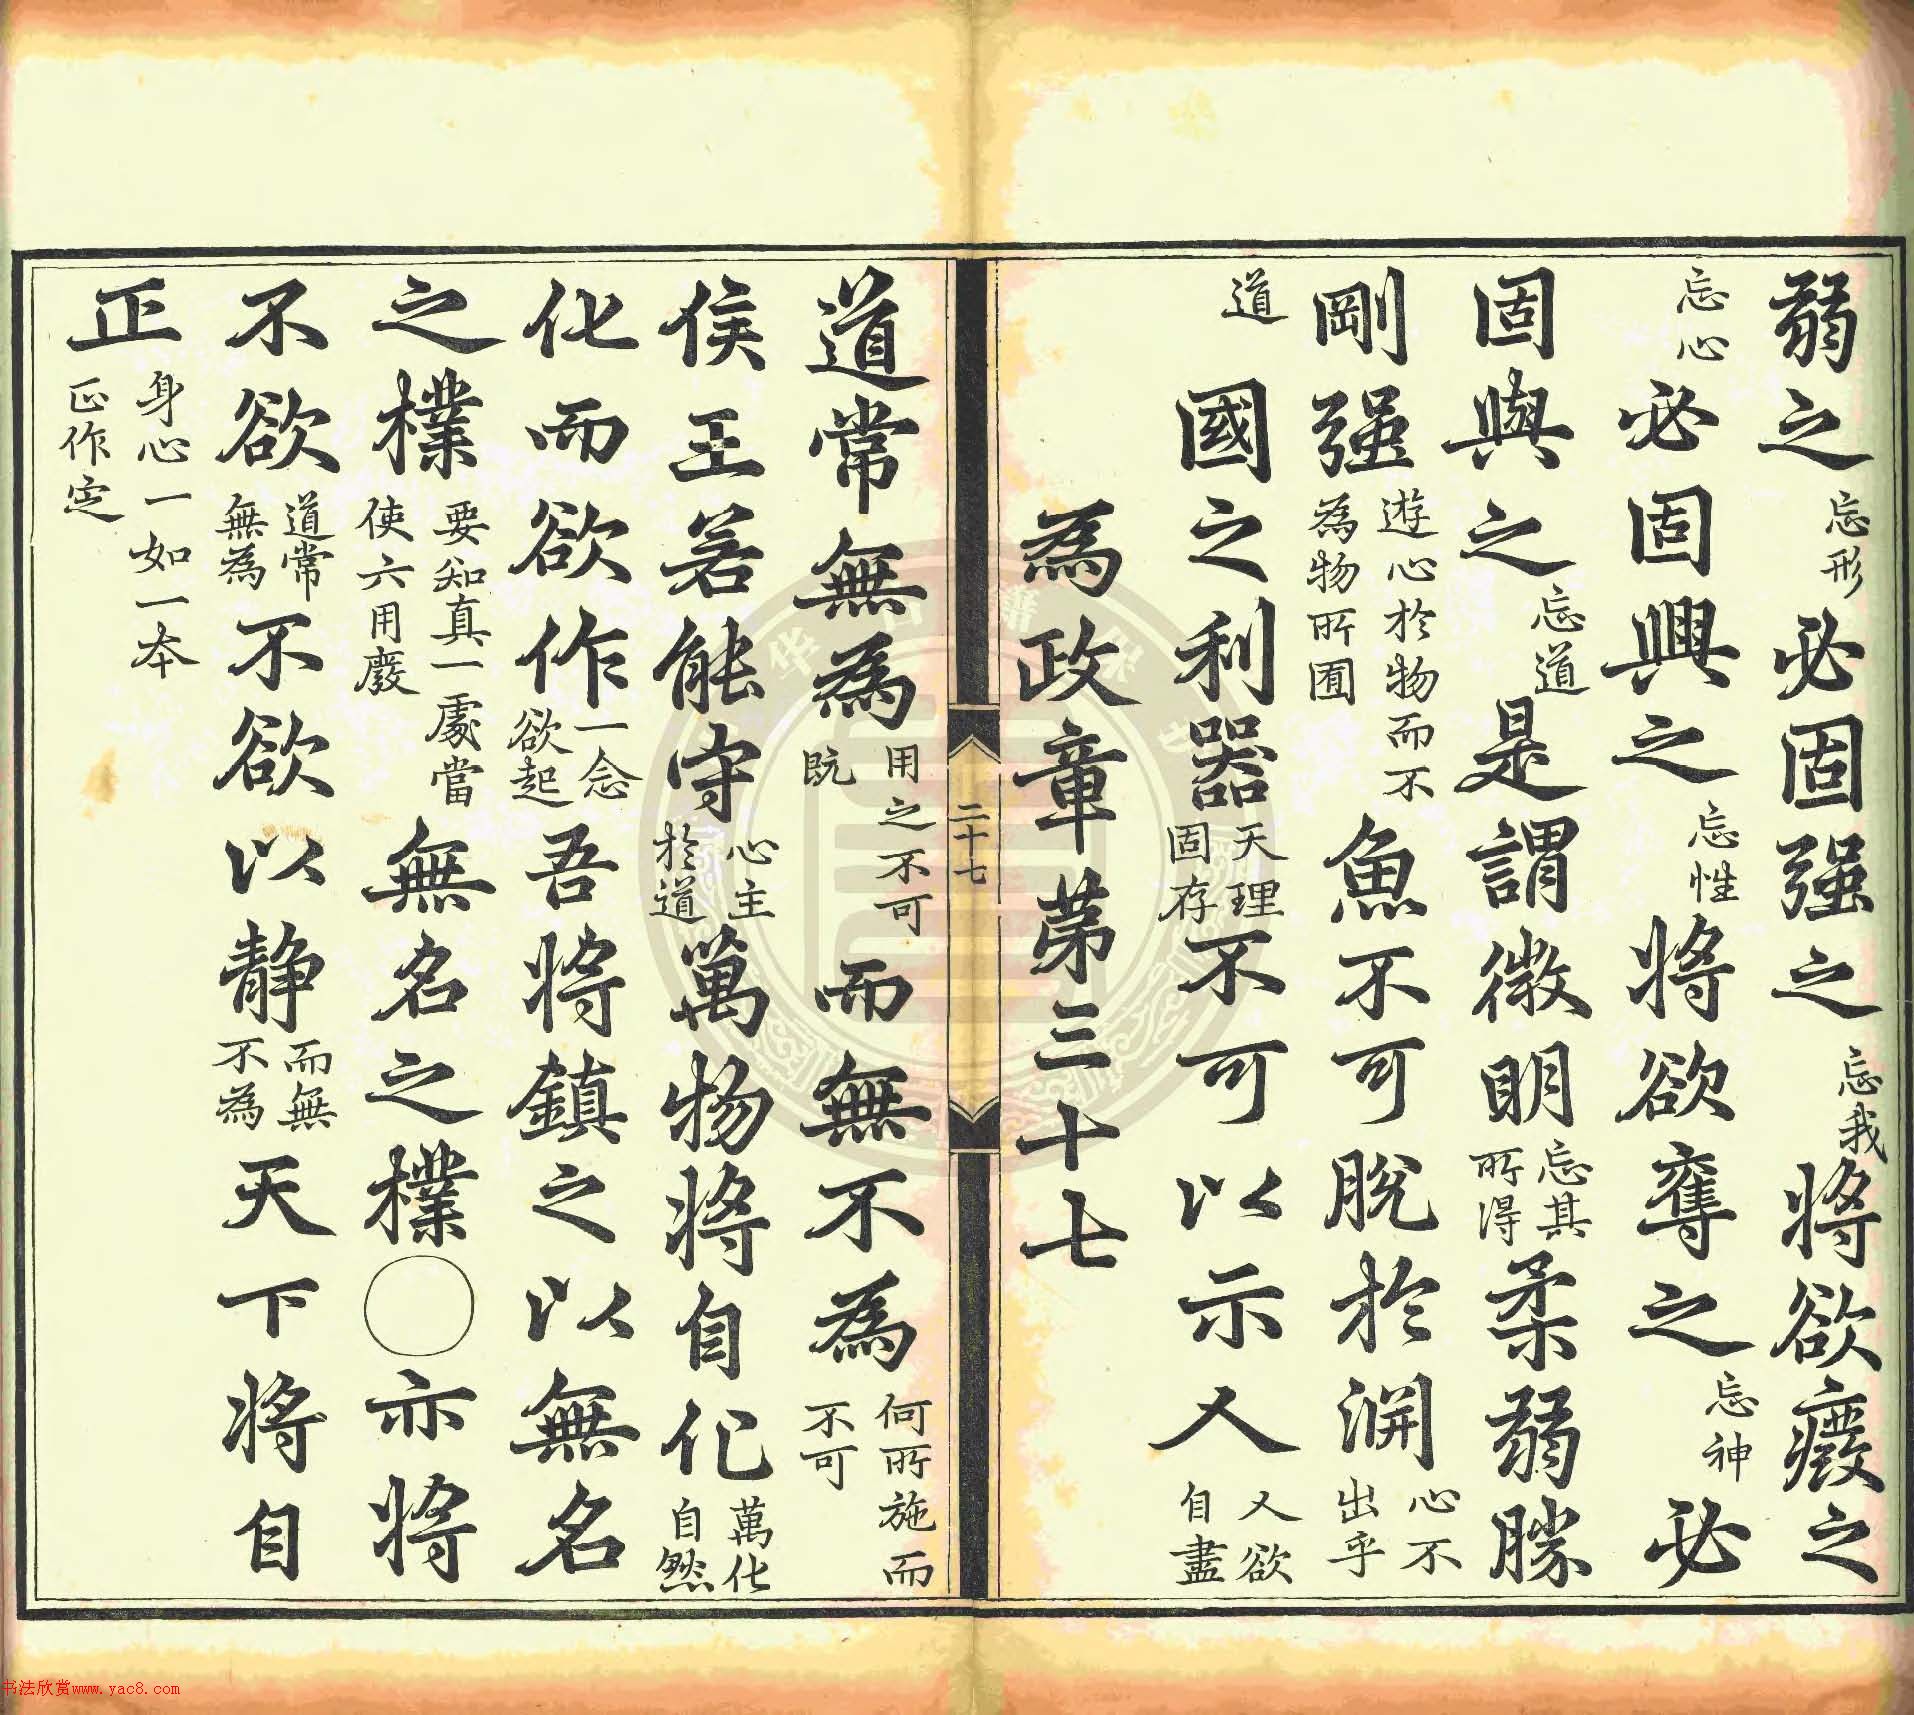 弱之忘形必固强之忘我將欲癈之
忘心必固興之忘性將欲奪之忘神必
固與之忘道是謂微明忘其所得柔弱勝
剛强遊心於物而不為物所囿魚不可脫於渊心不出乎
道國之利器天理固存不可以示人人欲自盡
為政章苐三十七
二十七
道常無為用之不可既而無不為何所施而不可
侯王若能守心主於道萬物將自化萬化自然
化而欲作一念欲起吾將鎮之以無名
之樸要知真一處當使六用廢無名之樸○亦將
不欲道常無為不欲以静而無不為天下將自
正身心一如一本正作定
书法欣赏www.yac8.com